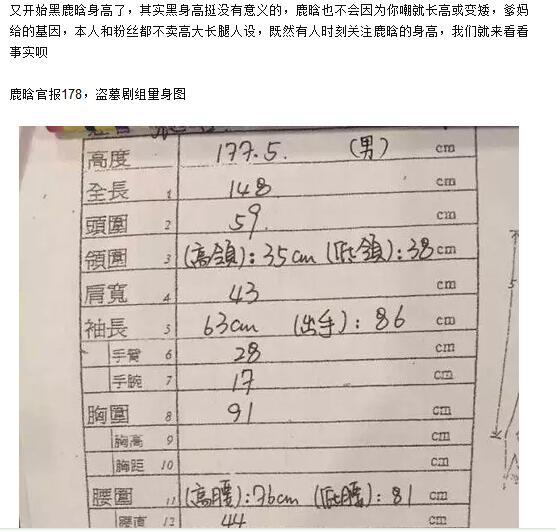 又开始黑鹿晗身高了，其实黑身高挺没有意义的，鹿晗也不会因为你嘲就长高或变矮，爹妈
给的基因，本人和粉丝都不卖高大长腿人设，既然有人时刻关注鹿晗的身高，我们就来看看
事实呗
鹿晗官报178，盗墓剧组量身图
高度 177.5. (男) cm
全長 1 148 cm
頭圍 2 59. cm
領圍 3 (高領)：35cm (低領)：38 cm
肩寬 4 43 cm
袖長 5 63cm (出手)：86 cm
手臂 6 28 cm
手腕 7 17 cm
胸圍 8 91 cm
胸高 9 cm
胸距 10 cm
腰圍 11 (高腰)：76cm (低腰)：81 cm
腰直 12 44 cm
5